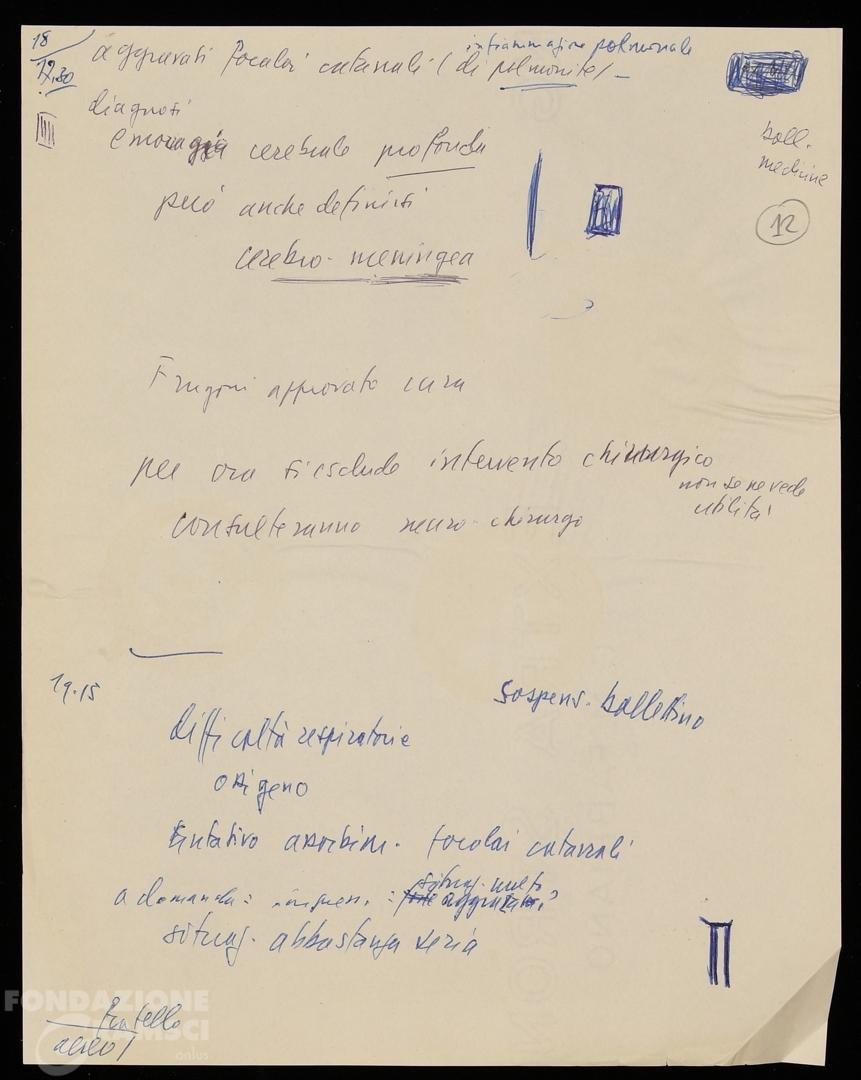 18
17.30
infiammazione polmonale
aggravati focolai catarrali (di polmonite) -
diagnosi
emorragia cerebrale profonda
però anche definirsi
cerebro-meningea
boll.
medicine
12
Frugoni approvato cura
per ora si esclude intervento chirurgico
non se ne vede
utilità
consulteranno neuro-chirurgo
19.15
sospens. bollettino
difficoltà respiratorie
ossigeno
tentativo assorbim. focolai catarrali
situaz. molto
a domanda: : aggravata?
situaz. abbastanza seria
fratello
aereo /
FONDAZIONE
GRAMSCI
onlus